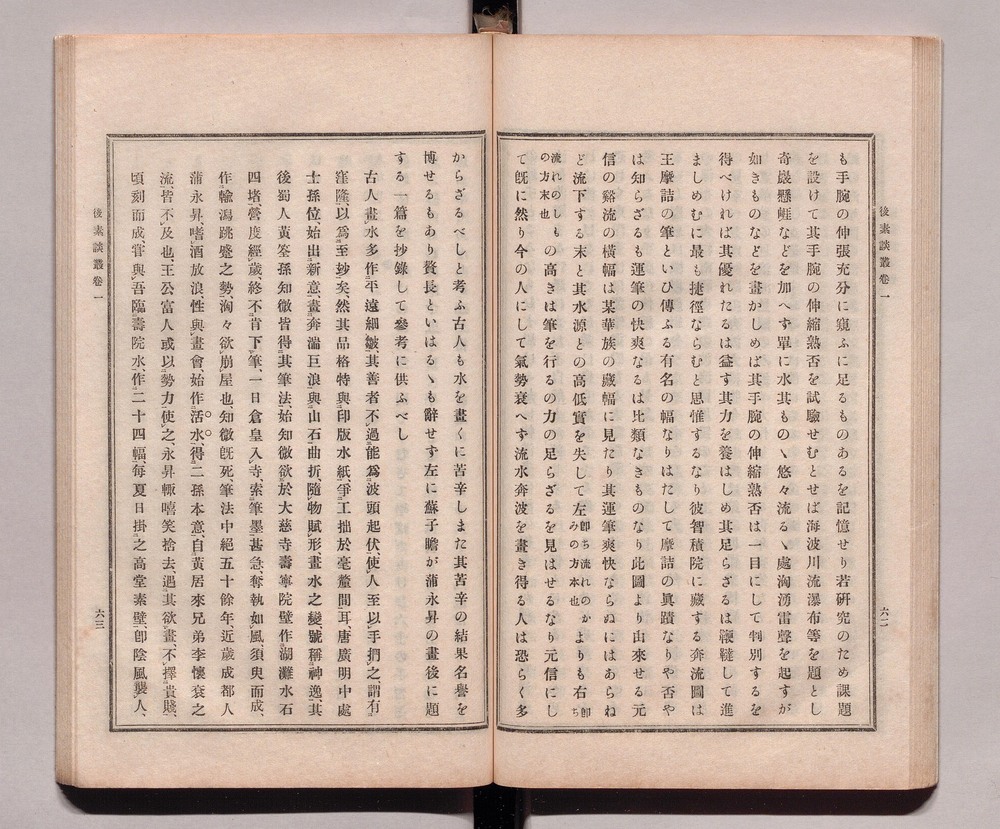 後素談叢卷一
六二
も手腕の伸張充分に窺ふに足るものあるを記憶せり若硏究のため課題
を設けて其手腕の伸縮熟否を試驗せむとせば海波川流瀑布等を題とし
奇巖懸崕などを加へず單に水其もの丶悠々流る丶處洶湧雷聲を起すが
如きものなどを畫かしめば其手腕の伸縮熟否は一目にして判別するを
得べければ其優れたるは益す其力を養はしめ其足らざるは鞭韃して進
ましめむに最も捷徑ならむと思惟するなり彼智積院に藏する奔流圖は
王摩詰の筆といひ傳ふる有名の幅なりはたして摩詰の眞蹟なりや否や
は知らざるも運筆の快爽なるは比類なきものなり此圖より由來せる元
信の谿流の橫幅は某華族の藏幅に見たり其運筆爽快ならぬにはあらね
ど流下する末と其水源との高低實を失して左卽ち流れのかみの方本也よりも右卽ち
流れのしもの方末也の高きは筆を行るの力の足らざるを見はせるなり元信にし
て旣に然り今の人にして氣勢衰へず流水奔波を畫き得る人は恐らく多
からざるべしと考ふ古人も水を畫くに苦辛しまた其苦辛の結果名譽を
博せるもあり贅長といはる丶も辭せず左に蘇子瞻が蒲永昇の畫後に題
する一篇を抄錄して參考に供ふべし
古人畫水多作平遠細皺其善者不過能爲波頭起伏使人至以手捫之謂有
窪隆以爲至妙矣然其品格特與印版水紙爭工拙於毫釐間耳唐廣明中處
士孫位始出新意畫奔湍巨浪與山石曲折隨物賦形畫水之變號稱神逸其
後蜀人黃筌孫知微皆得其筆法始知微欲於大慈寺壽寧院壁作湖灘水石
四堵營度經歲終不肯下筆一日倉皇入寺索筆墨甚急奪執如風須臾而成
作輸瀉跳蹙之勢洶々欲崩屋也知微旣死筆法中絕五十餘年近歲成都人
蒲永昇嗜酒放浪性與畫會始作活水得二孫本意自黃居來兄弟李懷袞之
流皆不及也王公富人或以勢力使之永昇輒嘻笑捨去遇其欲畫不擇貴賤
頃刻而成甞與吾臨壽院水作二十四幅每夏日掛之高堂素壁卽陰風襲人
後素談叢卷一
六三